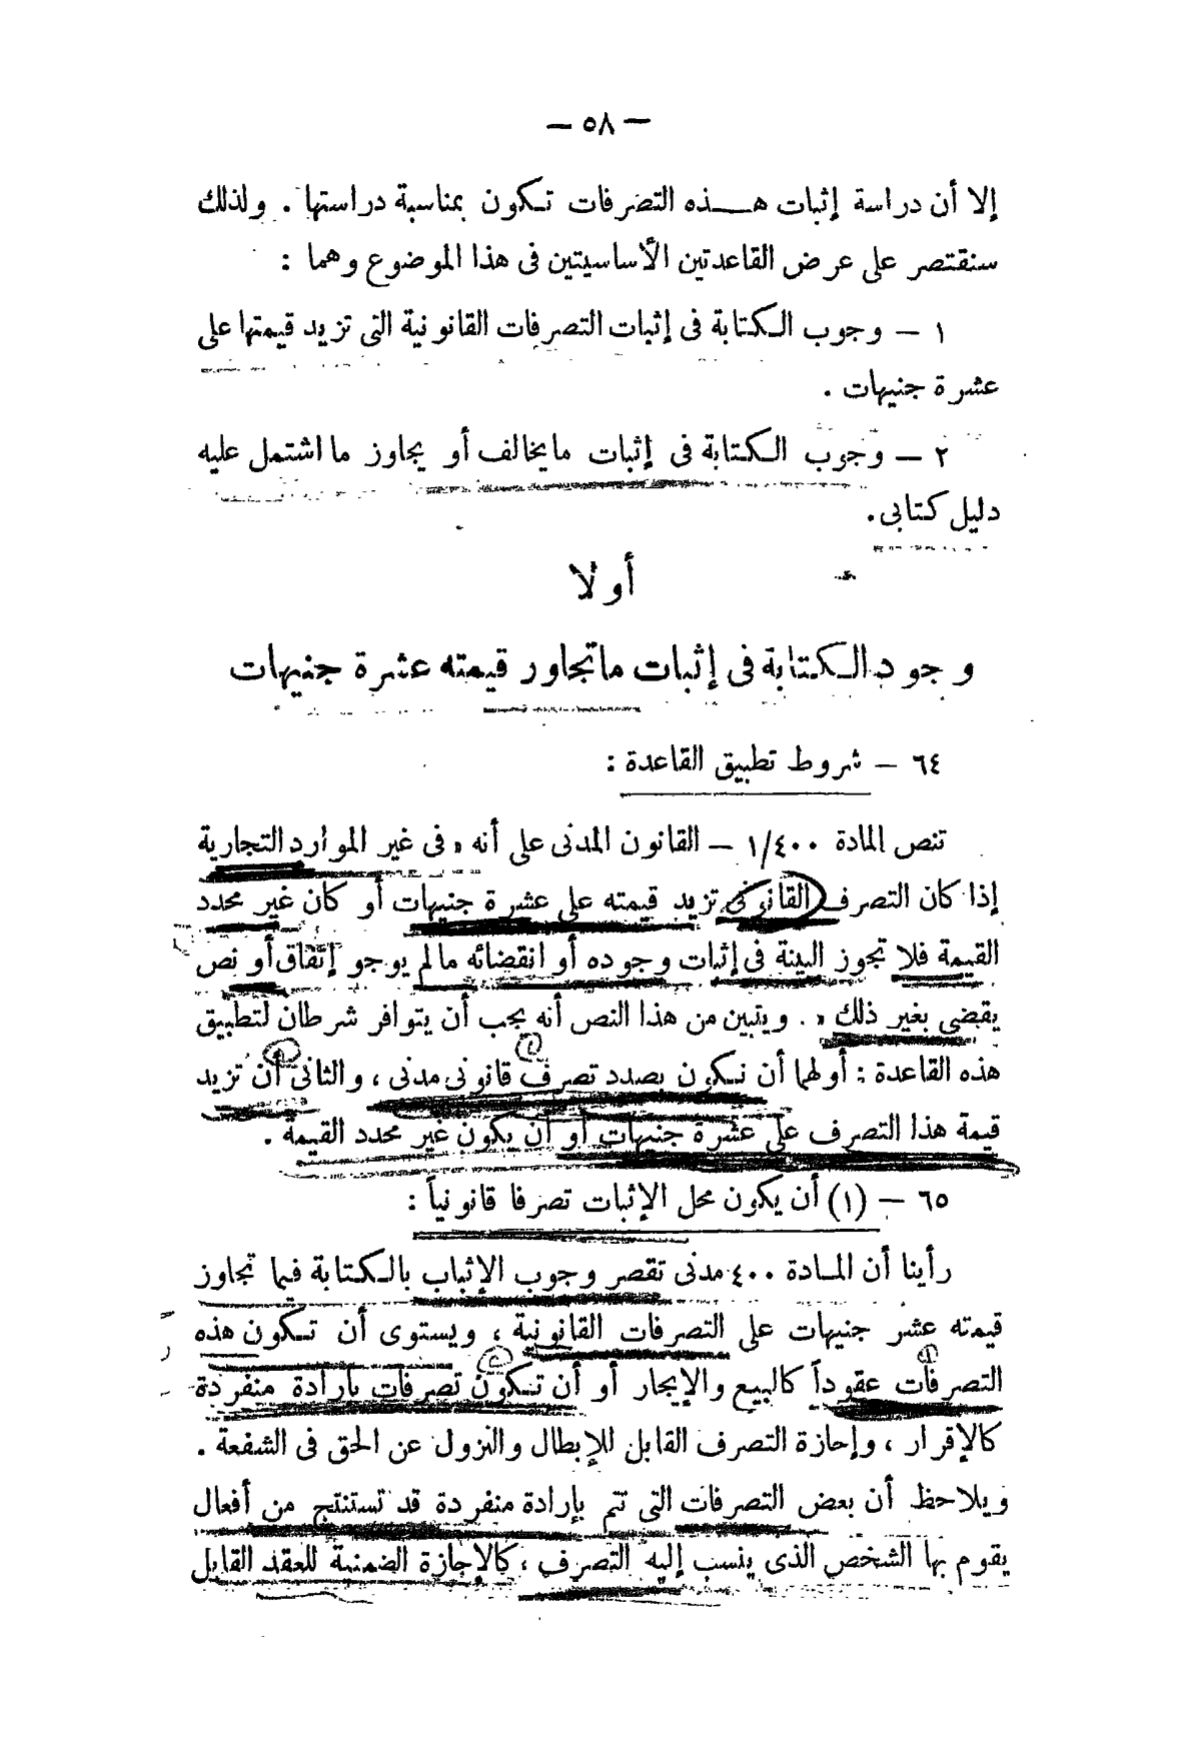 — ٥٨ —
إلا أن دراسة إثبات هـــذه التصرفات تكون بمناسبة دراستها . ولذلك
سنقتصر على عرض القاعدتين الأساسيتين فى هذا الموضوع وهما :
١ — وجوب الكتابة فى إثبات التصرفات القانونية التى تزيد قيمتها على
عشرة جنيهات .
٢ — وجوب الكتابة فى إثبات ما يخالف أو يجاوز ما اشتمل عليه
دليل كتابى.
أولا
وجود الكتابة فى إثبات ما تجاور قيمته عشرة جنيهات
٦٤ — شروط تطبيق القاعدة :
تنص المادة ١/٤٠٠ — القانون المدنى على أنه « فى غير الموارد التجارية
إذا كان التصرف القانونى تزيد قيمته على عشرة جنيهات أو كان غير محدد
القيمة فلا تجوز البينة فى إثبات وجوده أو انقضائه مالم يوجو إتفاق أو نص
يقضى بغير ذلك » . ويتبين من هذا النص أنه يجب أن يتوافر شرطان لتطبيق
هذه القاعدة : أولهما أن نكون بصدد تصرف قانونى مدنى ، والثانى أن تزيد
قيمة هذا التصرف على عشرة جنيهات أو أن يكون غير محدد القيمة .
٦٥ — (١) أن يكون محل الإثبات تصرفا قانونياً :
رأينا أن المادة ٤٠٠ مدنى تقصر وجوب الإثباب بالكتابة فيما تجاوز
قيمته عشر جنيهات على التصرفات القانونية ، ويستوى أن تكون هذه
التصرفات عقوداً كالبيع والإيجار أو أن تكون تصرفات بإرادة منفردة
كالإقرار ، وإجازة التصرف القابل للإبطال والنزول عن الحق فى الشفعة .
ويلاحظ أن بعض التصرفات التى تتم بإرادة منفردة قد تستنتج من أفعال
يقوم بها الشخص الذى ينسب إليه التصرف ، كالإجازة الضمنية للعقد القابل